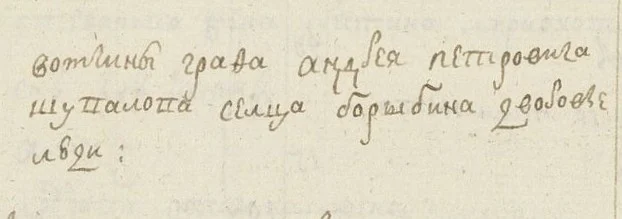 вотчины графа андрея петровича
шувалова селца борыбина дворовые
люди: